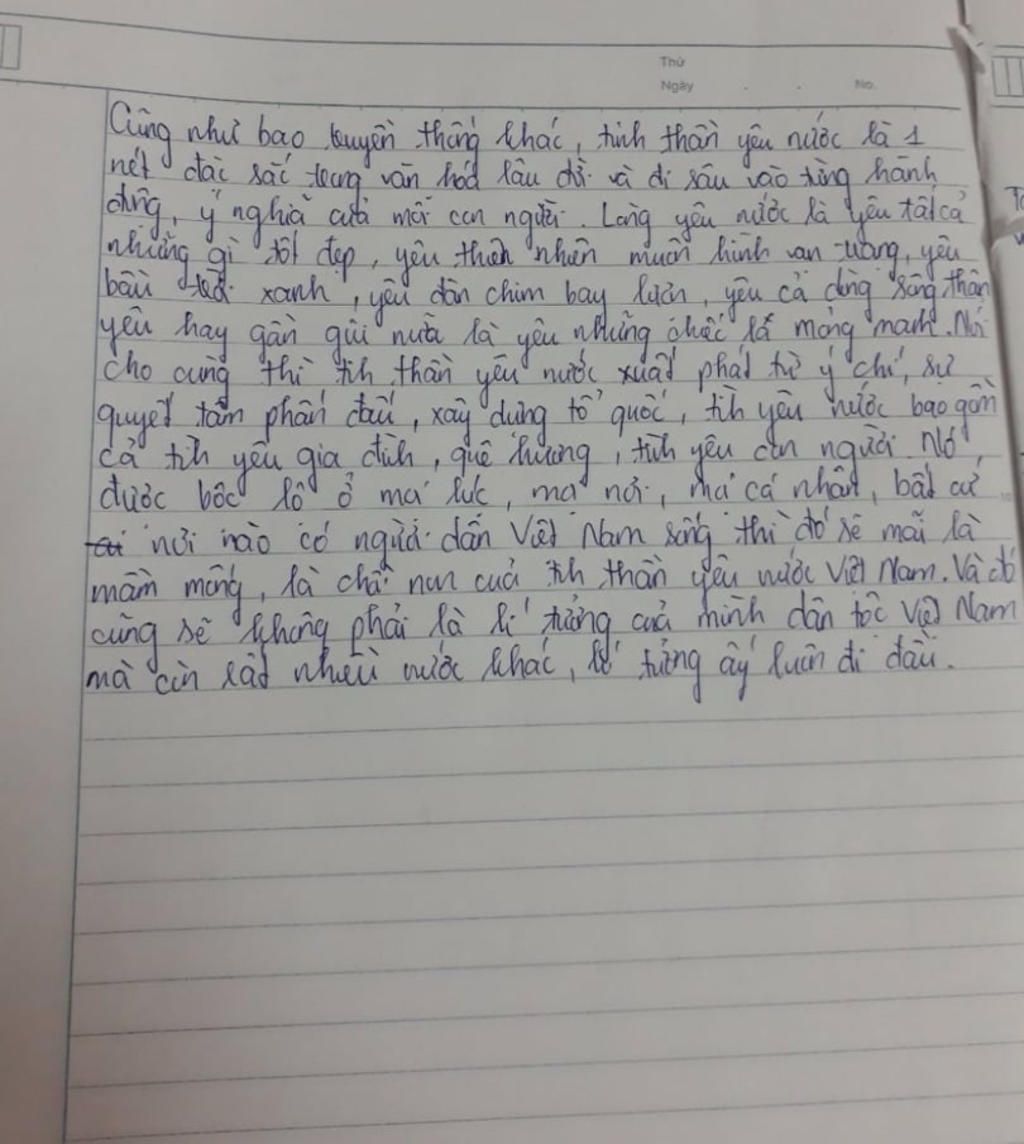 Thứ
Ngày . . No.
Cũng như bao truyền thống khác, tinh thần yêu nước là 1
nét đặc sắc trong văn hoá lâu đời và đi sâu vào từng hành
động, ý nghĩa của mỗi con người. Lòng yêu nước là yêu tất cả
những gì tốt đẹp, yêu thiên nhiên muôn hình vạn trạng, yêu
bầu trời xanh, yêu đàn chim bay lượn, yêu cả dòng sông thân
yêu hay gần gũi nữa là yêu những chiếc lá mỏng manh. Nói
cho cùng thì tình thần yêu nước xuất phát từ ý chí, sự
quyết tâm phấn đấu, xây dựng tổ quốc, tình yêu nước bao gồm
cả tình yêu gia đình, quê hương, tình yêu con người. Nó
được bộc lộ ở mọi lúc, mọi nơi, mọi cá nhân, bất cứ
nơi nào có người dân Việt Nam sống thì đó sẽ mãi là
mầm mống, là chồi non của tinh thần yêu nước Việt Nam. Và đó
cũng sẽ không phải là lí tưởng của mình dân tộc Việt Nam
mà còn rất nhiều nước khác, lí tưởng ấy luôn đi đầu.